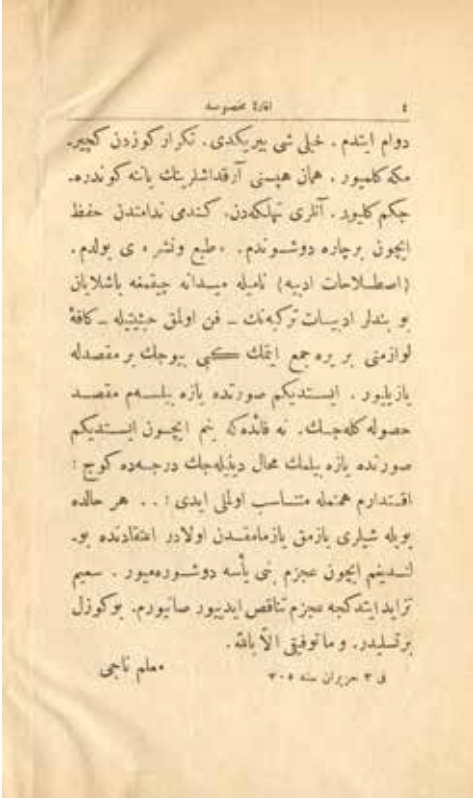 ٤ افادهٔ مخصوصه
دوام ایتدم . خیلی شی بیریکدی . تکرار کوزدن کچیر-
مکه کلمیور . همان هپسنی آرقداشلرینك یاننه کوندره-
جکم کلیور . آنلری تهلکه‌دن، کندمی ندامتدن حفظ
ایچون برچاره دوشوندم . «طبع ونشر» ی بولدم .
(اصطلاحات ادبیه) نامیله میدانه چیقمغه باشلایان
بو بندلر ادبیات ترکیه‌نك ــ فن اولمق حیثیتیله ــ کافهٔ
لوازمنی بر یره جمع ایتمك کبی بیوجك بر مقصدله
یازیلیور . ایستدیکم صورتده یازه بیلسه‌م مقصد
حصوله کله‌جك . نه فائده‌که بنم ایچون ایستدیکم
صورتده یازه بیلمك محال دینیله‌جك درجه‌ده کوج :
اقتدارم همتمله متناسب اولملی ایدی ! . . هر حالده
بویله شیلری یازمق یازمامقدن اولادر اعتقادنده بو-
لندیغم ایچون عجزم بنی یأسه دوشورە‌میور . سعیم
تزاید ایتدکجه عجزم تناقص ایدییور صانیورم . بوکوزل
برتسلیدر . و ما توفیقی الاّ بالله .
فی ٣ حزیران سنه ٣٠٥ معلم ناجی